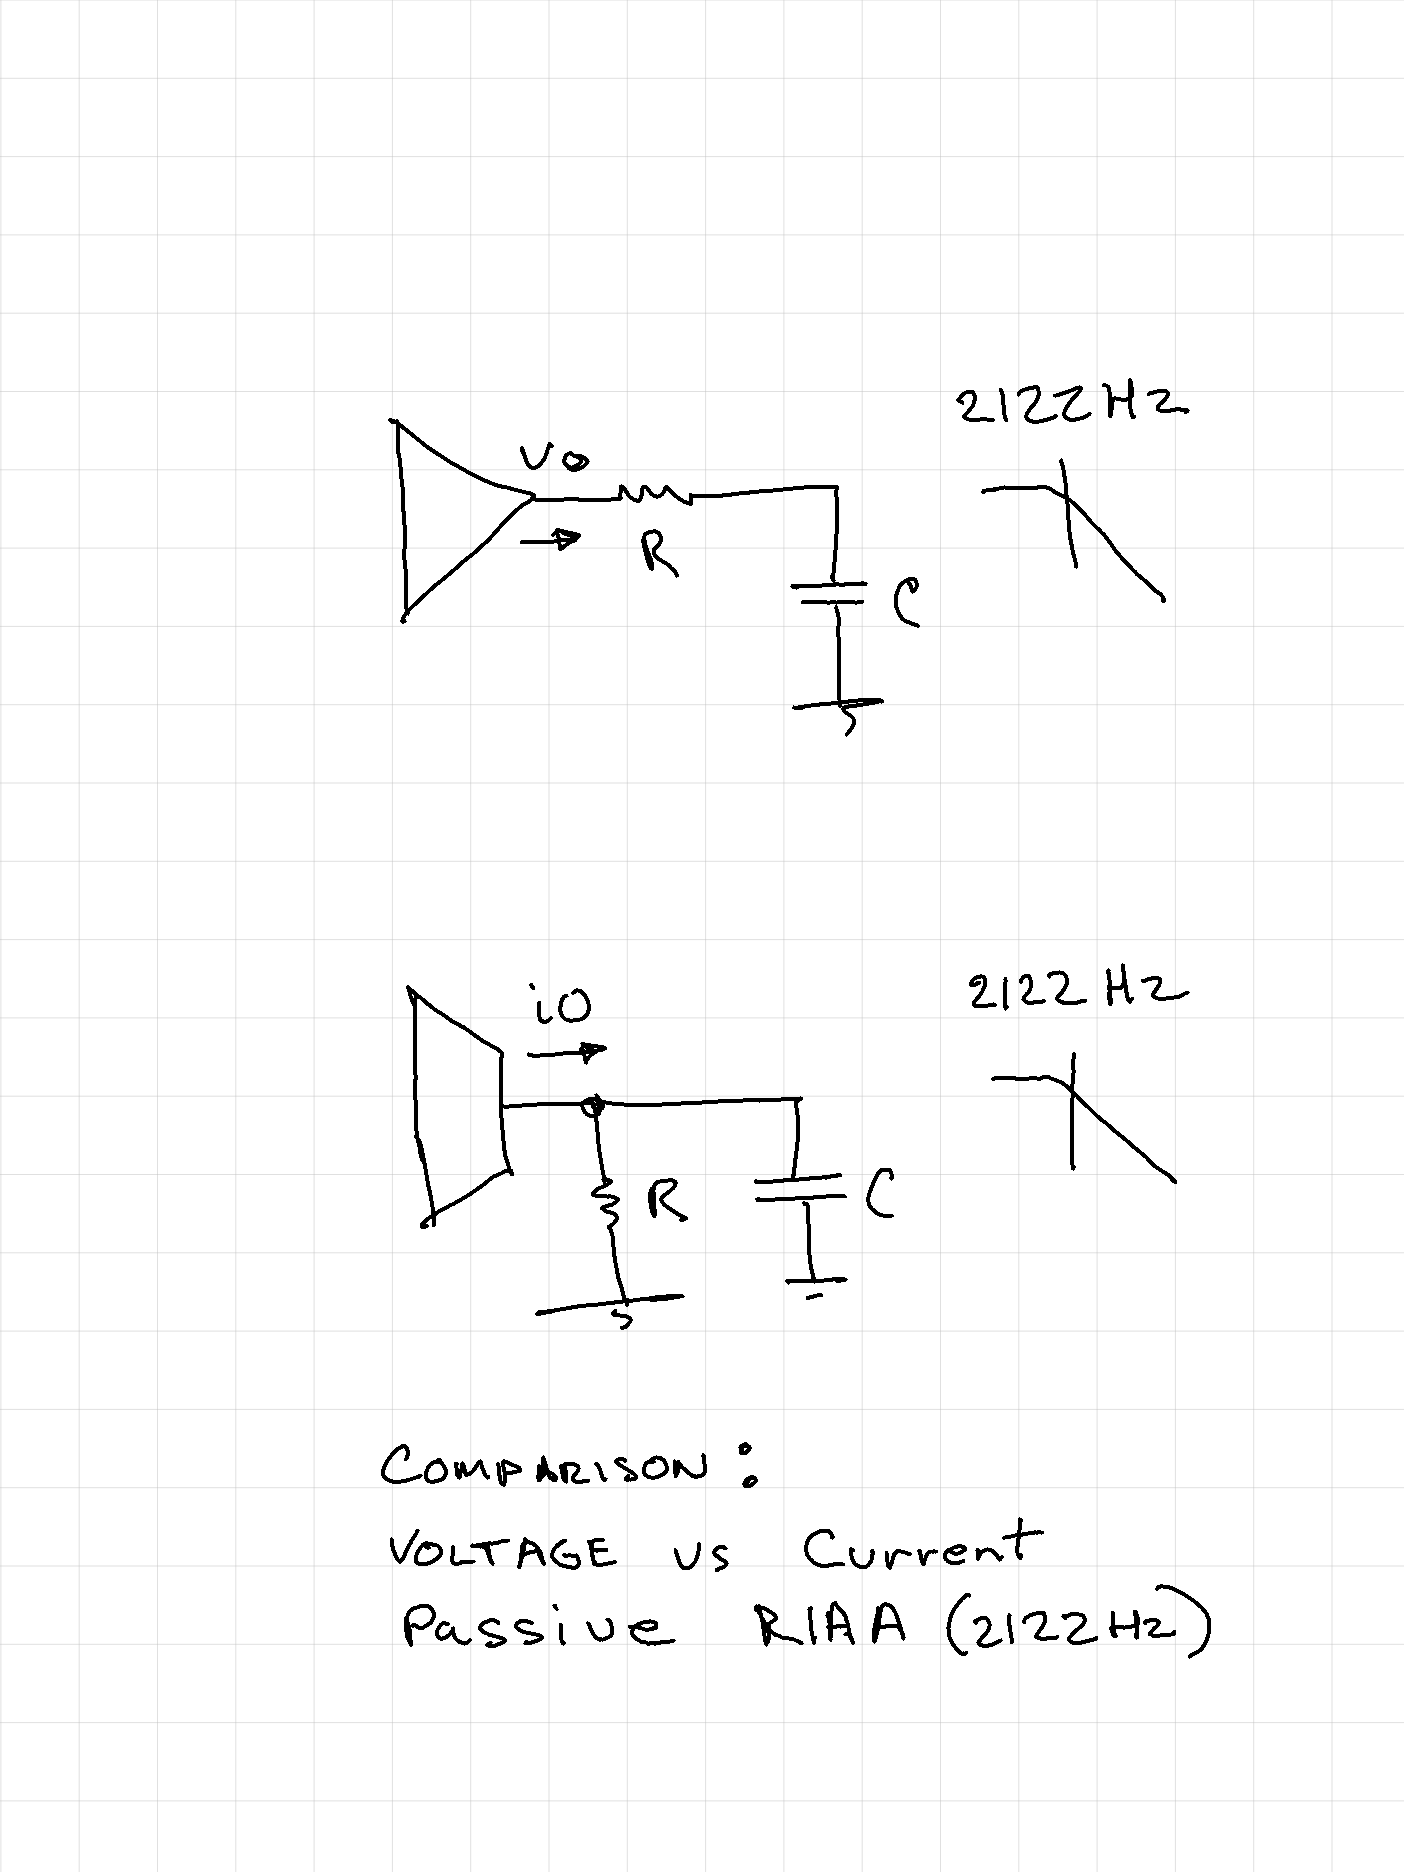 2122 Hz
Vo
R
C
2122 Hz
io
R
C
COMPARISON:
VOLTAGE vs Current
Passive RIAA (2122Hz)